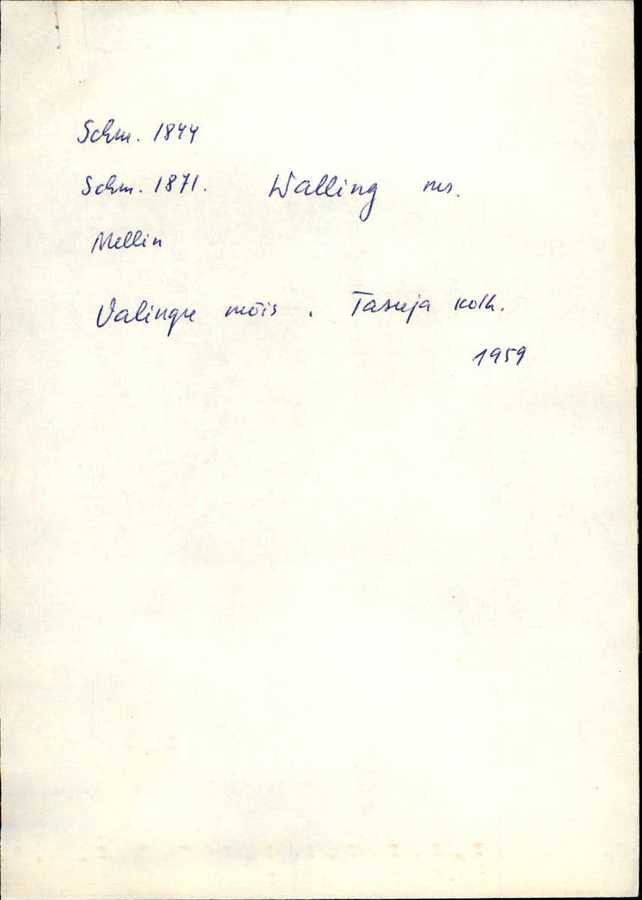 Schm. 1844
Schm. 1871. Walling ms.
Mellin
Valingu mõis. Tasuja kolh.
1959